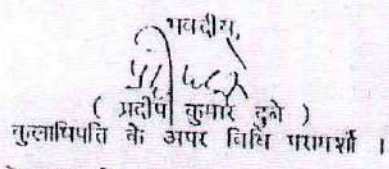 भवदीय,
( प्रदीप कुमार दुबे )
कुलाधिपति के अपर विधि परामर्शी ।